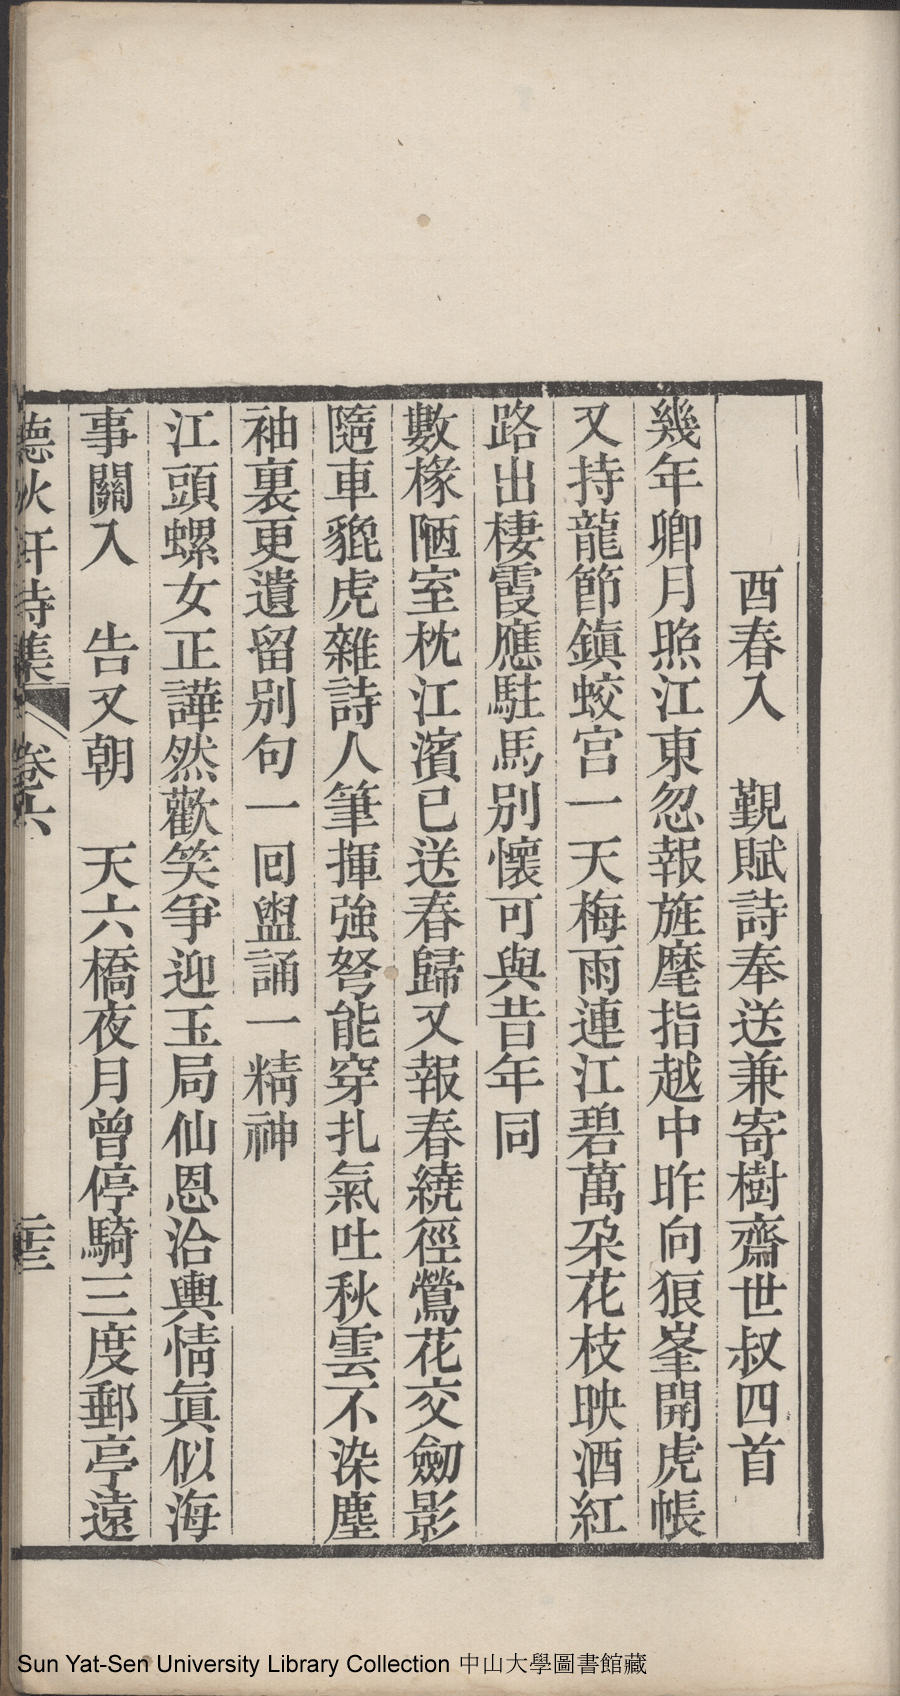 酉春入　覲賦詩奉送兼寄樹齋世叔四首
幾年卿月照江東忽報旌麾指越中昨向狼峯開虎帳
又持龍節鎮蛟宫一天梅雨連江碧萬朶花枝映酒紅
路出棲霞應駐馬別懷可與昔年同
數椽陋室枕江濱已送春歸又報春繞徑鶯花交劒影
隨車貔虎雜詩人筆揮強弩能穿扎氣吐秋雲不染塵
袖裏更遺留別句一回盥誦一精神
江頭螺女正譁然歡笑爭迎玉局仙恩洽輿情眞似海
事關入　告又朝　天六橋夜月曾停騎三度郵亭遠
聽秋軒詩集　卷六　二十三
Sun Yat-Sen University Library Collection 中山大學圖書館藏